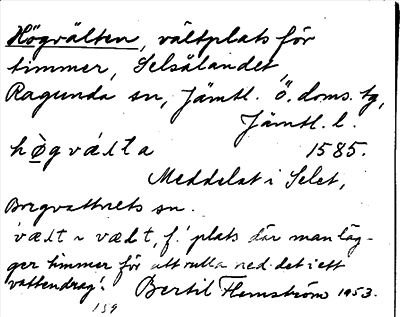 Högvälten, vältplats för
timmer, Selsålandet
Ragunda sn, Jämtl. ö. doms. tg,
Jämtl. l.
hø̀gvál̄ta 1585.
Meddelat i Selet,
Borgvattnets sn.
væłt ~ vædt, f. 'plats där man läg-
ger timmer för att rulla ned det i ett
vattendrag'. Bertil Flemström 1953.
159